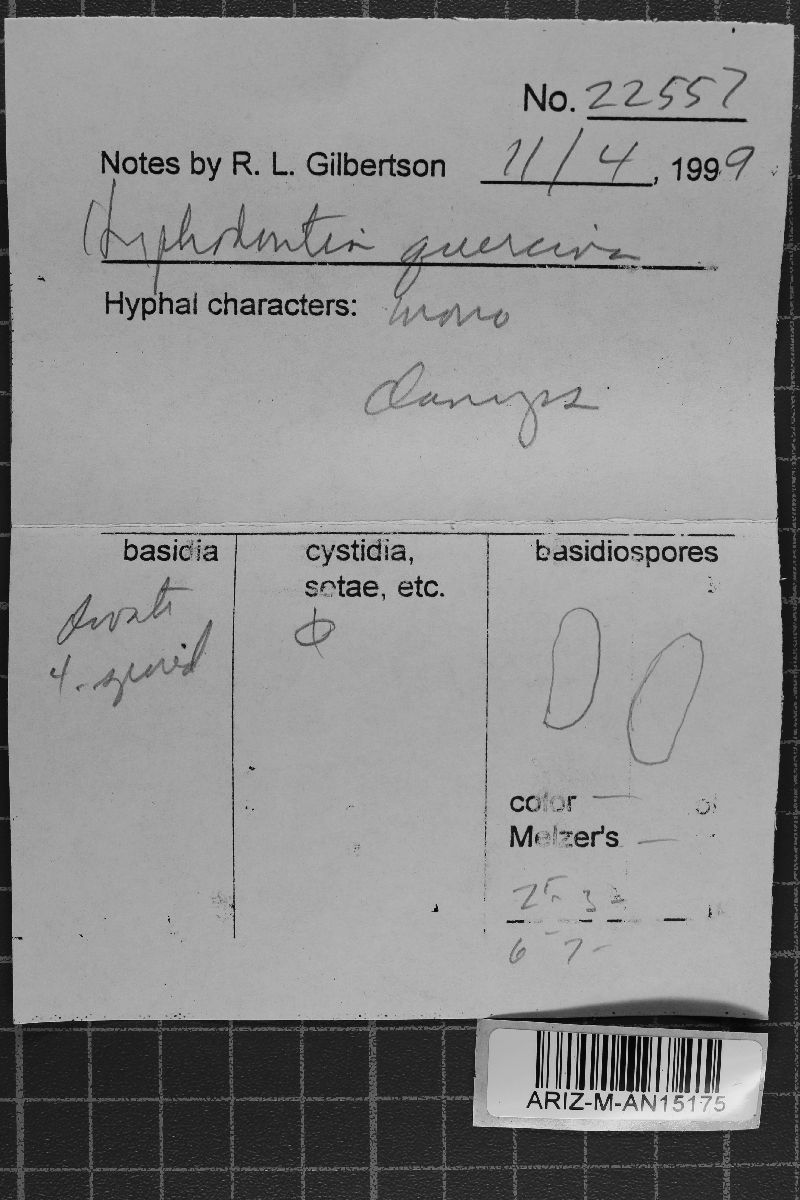 No. 22557
Notes by R. L. Gilbertson 11/4, 1999
Hyphodontia quercina
Hyphal characters: mono
clamps
basidia cystidia, basidiospores
setae, etc.
ovate
4-spored
φ
color —
Melzer's —
6 7
ARIZ-M-AN15175